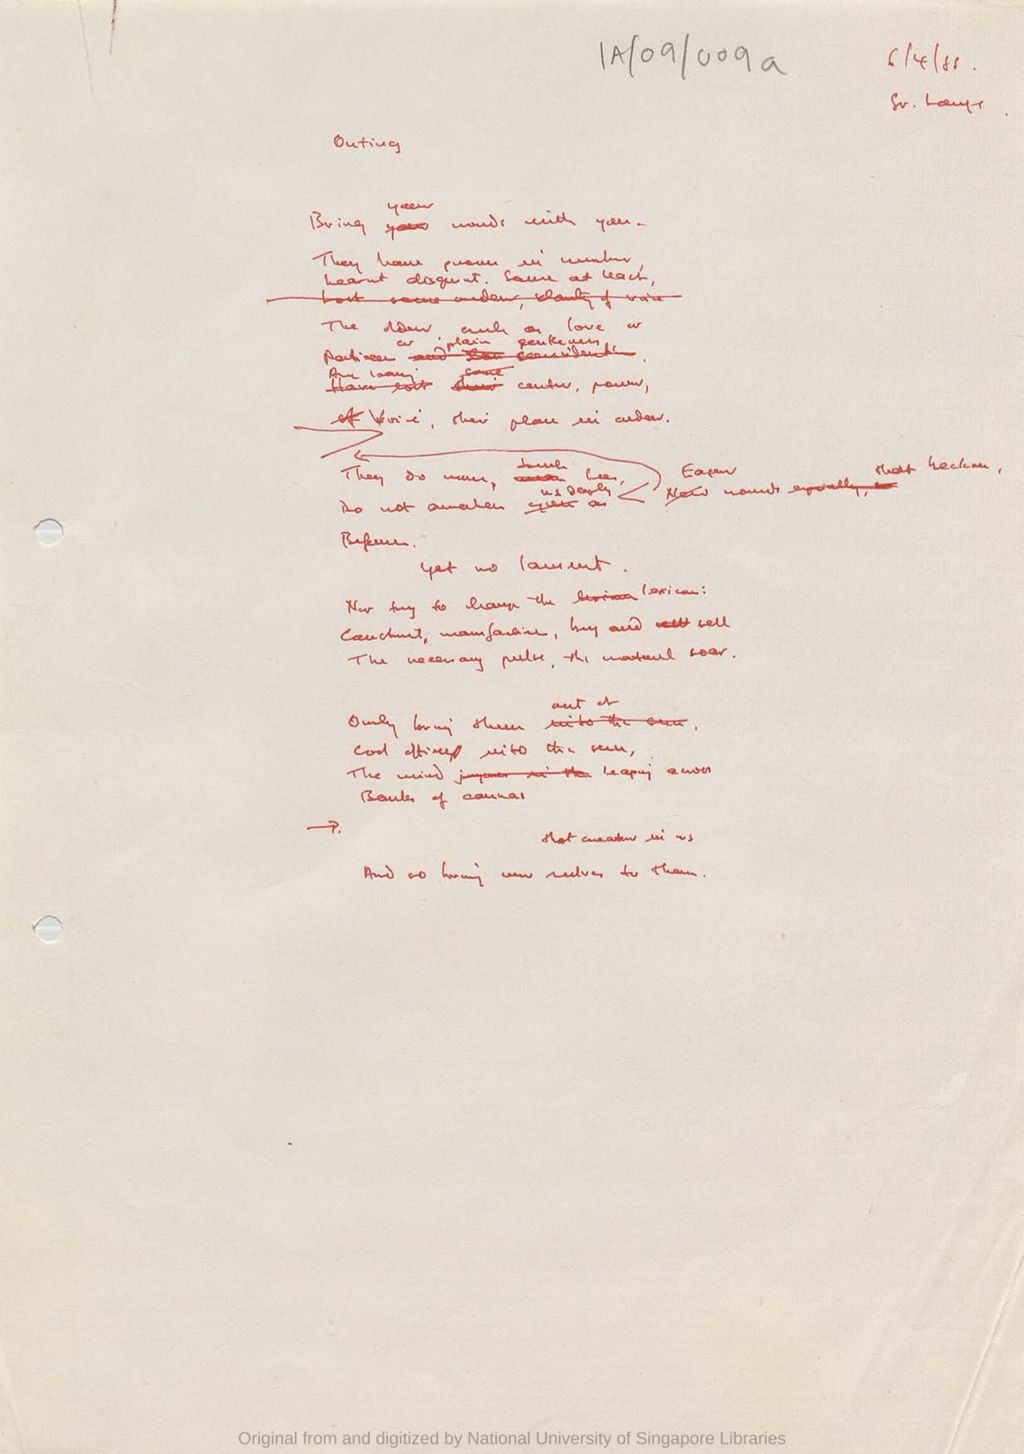 1A/09/009a
6/4/88.
Outing
your
Bring your words with you.
They have grown in number,
Learnt disquiet. Some at least,
Lost some ardour, clarity of voice
The older, such as love or
or plain
Partisan and
Are losing some
Have lost their center, power,
of Voice, their place in order.
They do move, touch less,
Eager
that beckon,
New words equally,
us deeply
Do not awaken as
Before.
Yet no lament.
Nor try to change the lexicon:
Construct, manufacture, buy and sell
The necessary pulse, the material soar.
out of
Only bring them into the sun,
Cool offices into the sun,
The mind leaping across
Banks of cannas
→
that creature in us
And so bring our selves to them.
Original from and digitized by National University of Singapore Libraries